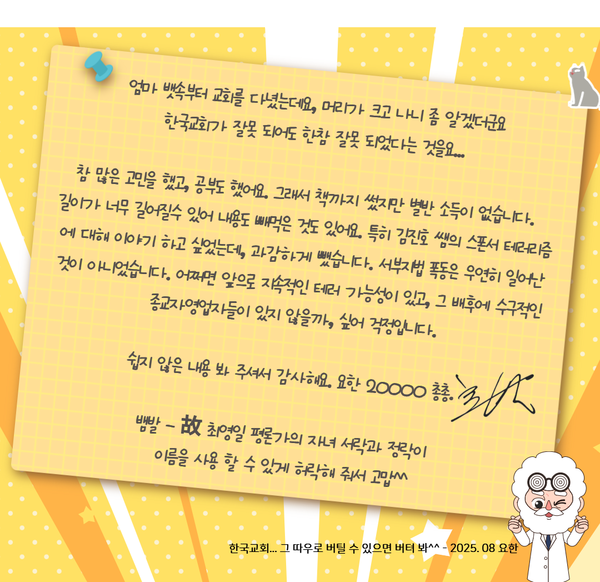 엄마 뱃속부터 교회를 다녔는데요, 머리가 크고 나니 좀 알겠더군요
한국교회가 잘못 되어도 한참 잘못 되었다는 것을요...
참 많은 고민을 했고, 공부도 했어요. 그래서 책까지 썼지만 별반 소득이 없습니다.
길이가 너무 길어질수 있어 내용도 빼먹은 것도 있어요. 특히 김진호 쌤의 스폰서 테러리즘
에 대해 이야기 하고 싶었는데, 과감하게 뺐습니다. 서부지법 폭동은 우연히 일어난
것이 아니었습니다. 어쩌면 앞으로 지속적인 테러 가능성이 있고, 그 배후에 수구적인
종교자영업자들이 있지 않을까, 싶어 걱정입니다.
쉽지 않은 내용 봐 주셔서 감사해요. 요한 20000 총총.
뱀발 - 故 최영일 평론가의 자녀 서락과 정락이
이름을 사용 할 수 있게 허락해 줘서 고맙^^
한국교회... 그 따우로 버틸 수 있으면 버텨 봐^^ - 2025. 08 요한